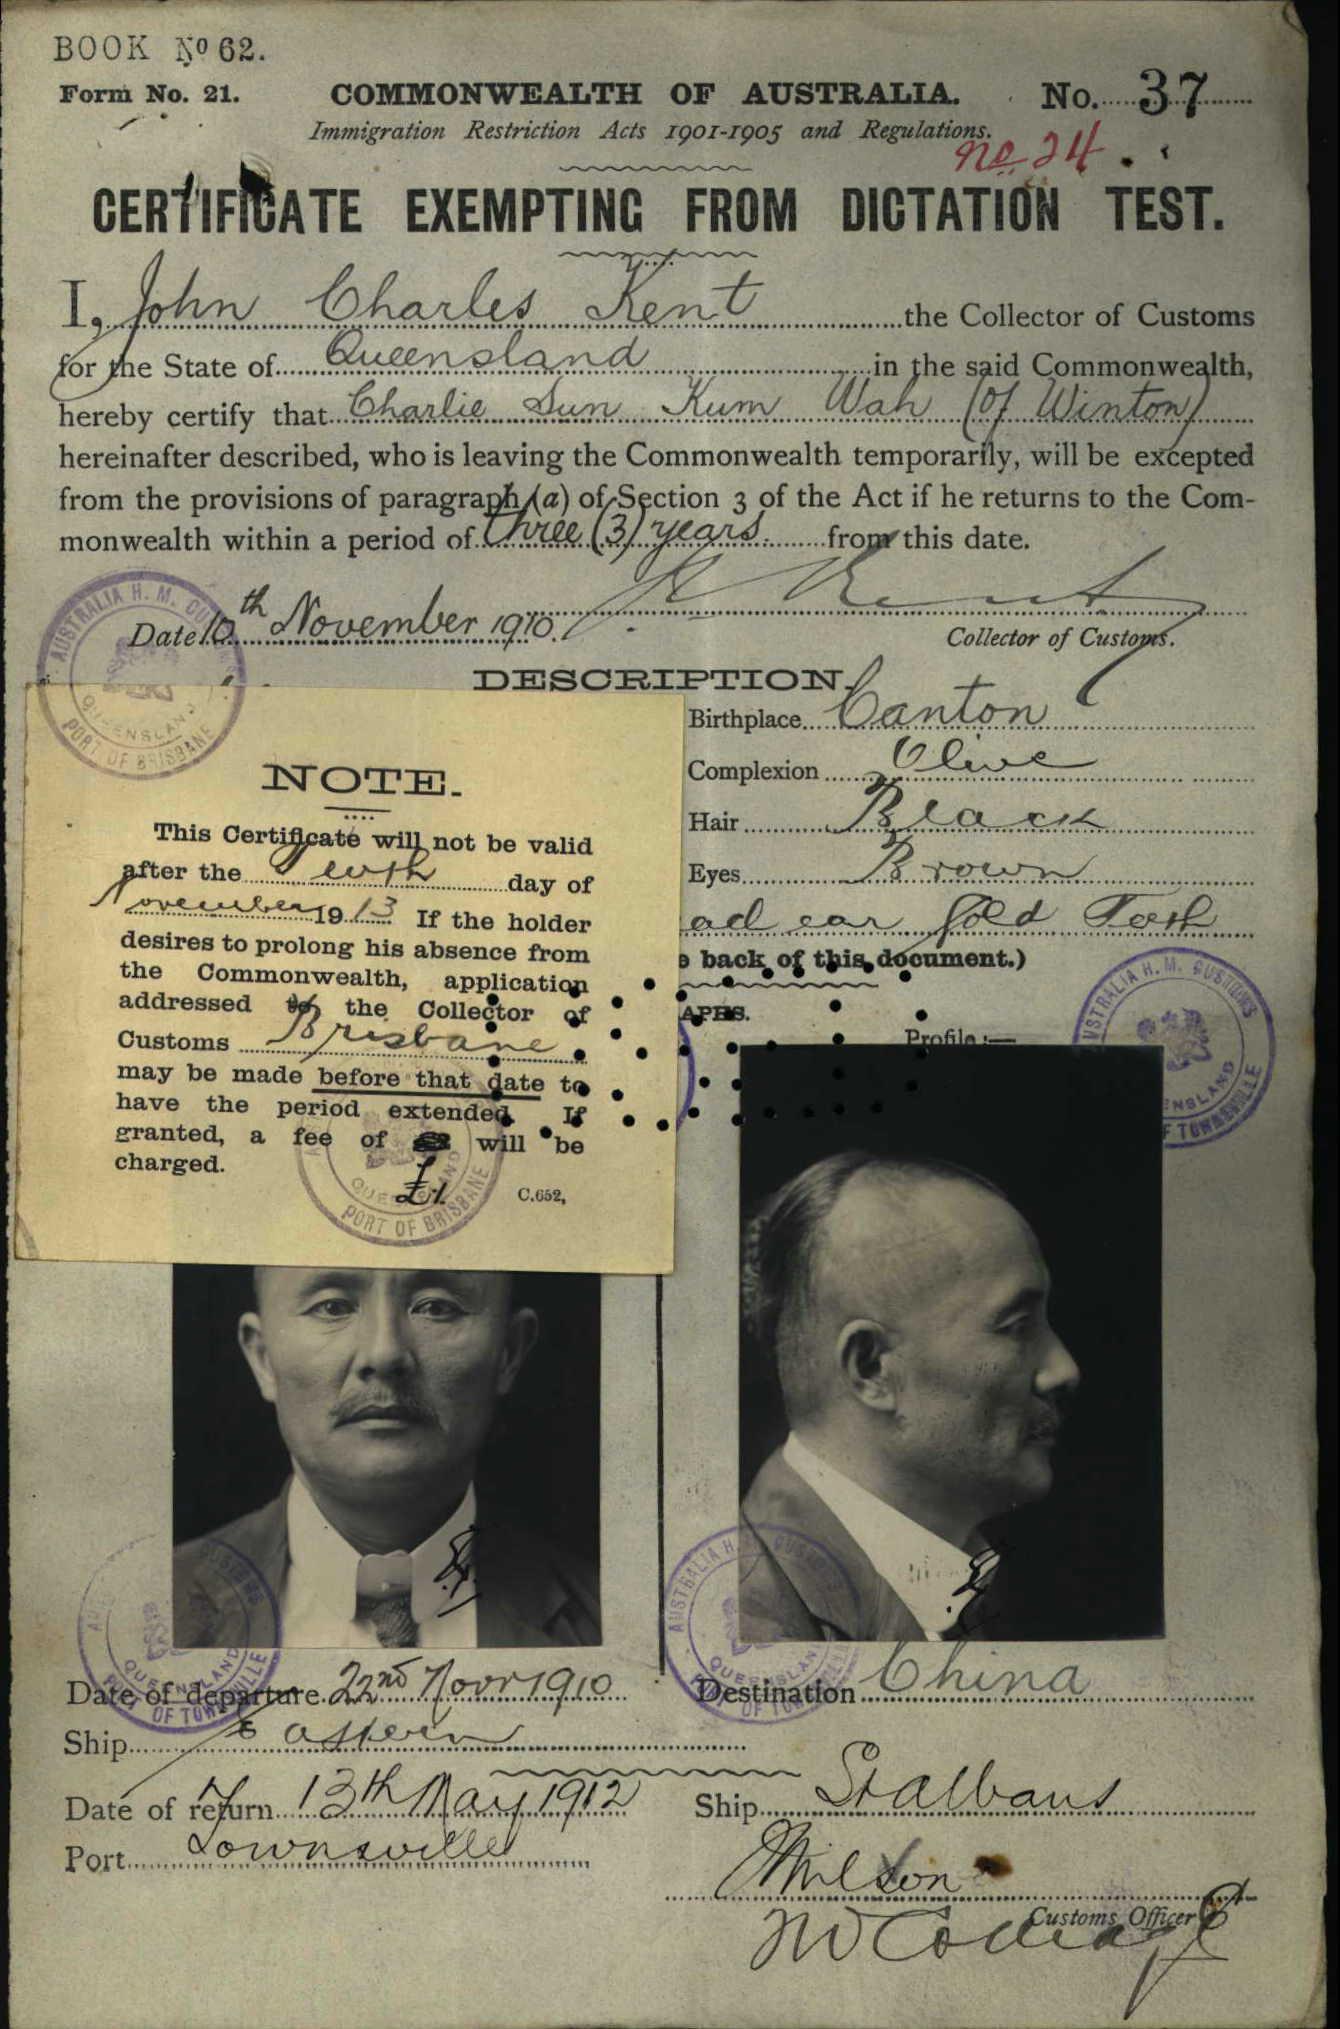 BOOK No 62.
Form No. 21.
COMMONWEALTH OF AUSTRALIA.
No. 37
Immigration Restriction Acts 1901-1905 and Regulations.
no 24
CERTIFICATE EXEMPTING FROM DICTATION TEST.
I, John Charles Kent the Collector of Customs
for the State of Queensland in the said Commonwealth,
hereby certify that Charlie Sun Kum Wah (of Winton)
hereinafter described, who is leaving the Commonwealth temporarily, will be excepted
from the provisions of paragraph (a) of Section 3 of the Act if he returns to the Com-
monwealth within a period of three (3) years from this date.
Date 10th November 1910.
Collector of Customs.
AUSTRALIA H. M. CUSTOMS
QUEENSLAND
PORT OF BRISBANE
DESCRIPTION.
Birthplace Canton
Complexion Olive
Hair Black
Eyes Brown
ear Gold Tooth
back of this document.)
APHS.
Profile:—
NOTE.
This Certificate will not be valid
after the Tenth day of
November 1913 If the holder
desires to prolong his absence from
the Commonwealth, application
addressed to the Collector of
Customs Brisbane
may be made before that date to
have the period extended. If
granted, a fee of will be
charged.
£1.
C.652,
QUEENSLAND
PORT OF BRISBANE
AUSTRALIA H. M. CUSTOMS
ENSLAND
F TOWNSVILLE
CUSTOMS
QUEENSLAND
OF TOWNSVILLE
AUSTRALIA H. CUSTOMS
QUEENSLAN
OF TO
Date of departure 22nd Novr 1910
Destination China
Ship Eastern
Date of return 13th May 1912
Ship St Albans
Port Townsville
Customs Officer